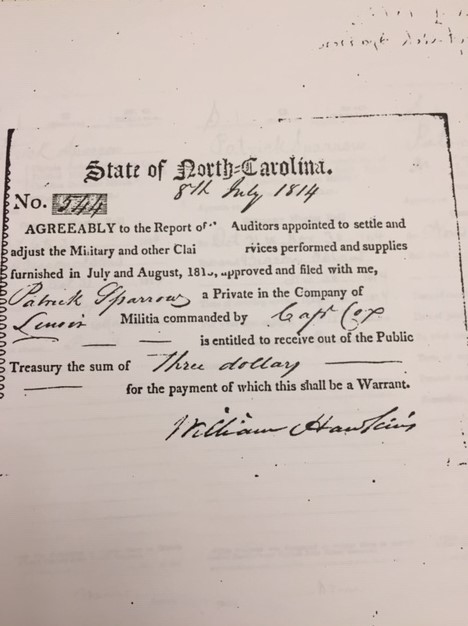 State of North-Carolina.
8th July 1814
No. 544
AGREEABLY to the Report of Auditors appointed to settle and
adjust the Military and other Clai rvices performed and supplies
furnished in July and August, 181 approved and filed with me,
Patrick Sparrow a Private in the Company of
Lenoir Militia commanded by Capt Cox
is entitled to receive out of the Public
Treasury the sum of three dollars
for the payment of which this shall be a Warrant.
William Hawkins